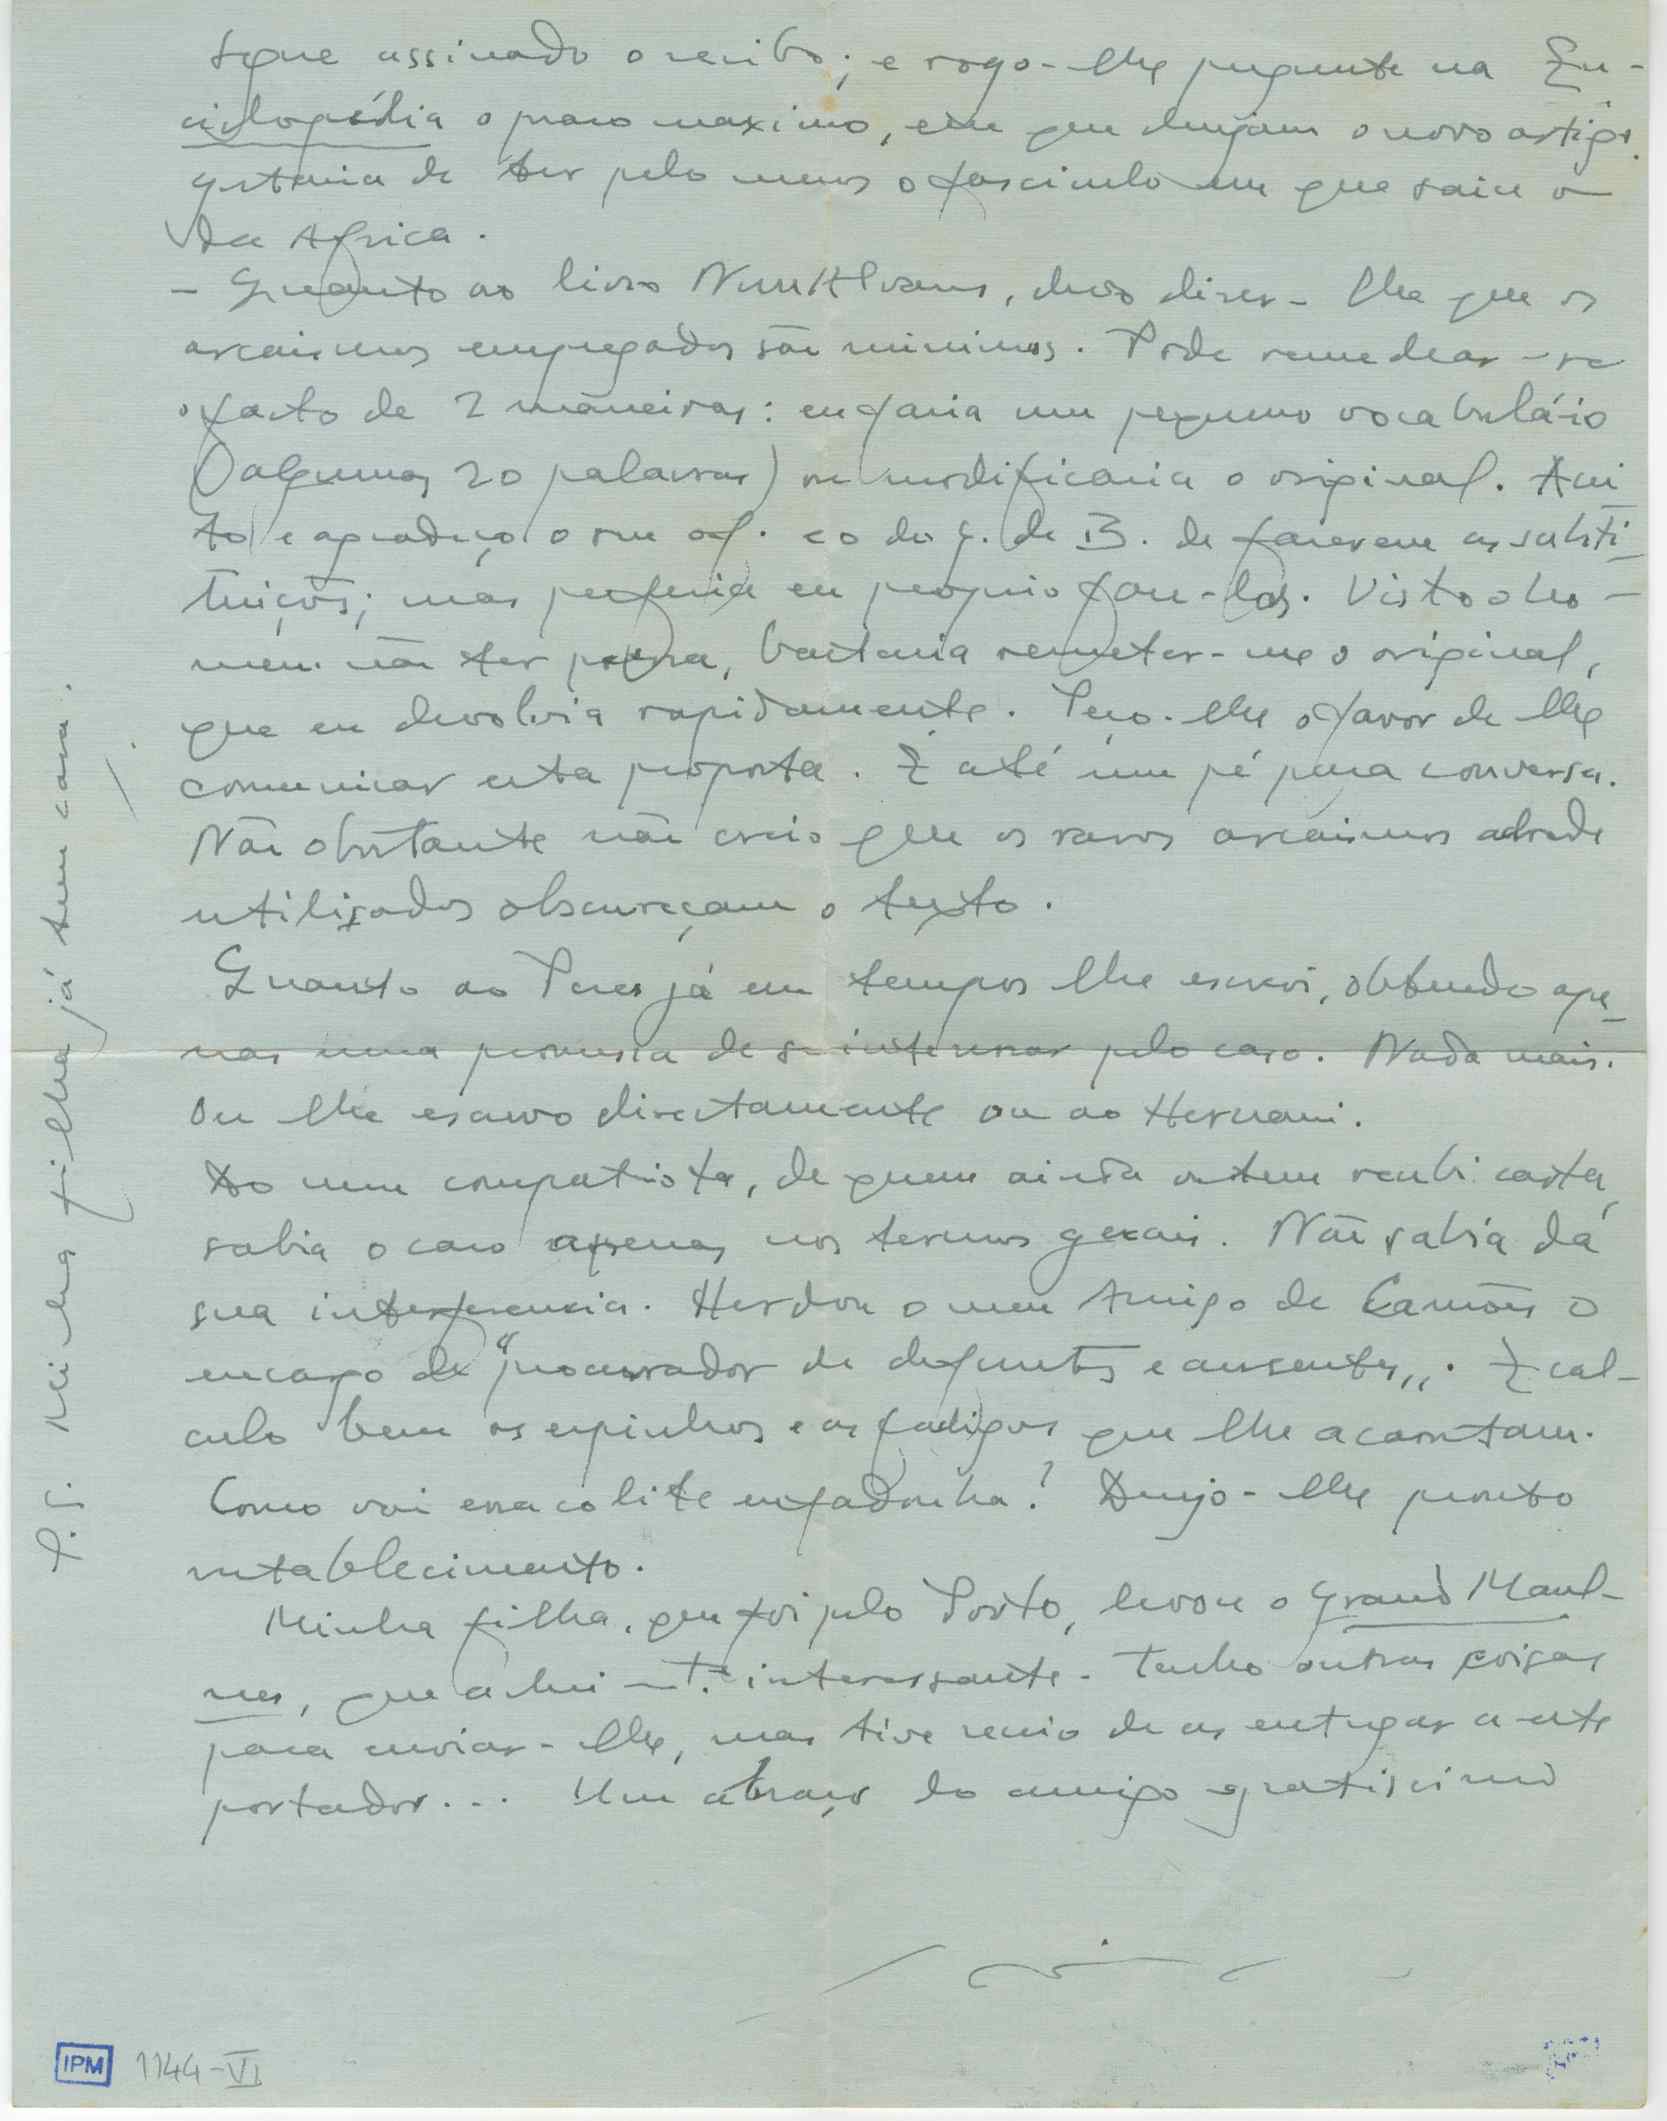 Segue assinado o recibo; e rogo-lhe pergunte na En-
ciclopédia o prazo maximo, em que desejam o novo artigo.
gostaria de ter pelo menos o fasciculo em que saiu o
da Africa.
- Quanto ao livro Nun'Alvares, devo dizer-lhe que os
arcaismos empregados são minimos. Pode remediar-se
o facto de 2 maneiras: eu faria um pequeno vocabulário
(algumas 20 palavras) ou modificaria o original. Acei-
to e agradeço o seu of. e o do G. de B. de fazerem as substi-
tuições; mas preferia eu proprio faze-las. Visto o ho-
mem não ter pressa, bastaria remeter-me o original,
que eu devolvia rapidamente. Peço-lhe o favor de lhe
comunicar esta proposta. É até um pé para conversa.
Não obstante não creio que os raros arcaismos adrede
utilizados obscureçam o texto.
Quanto ao Peres já em tempos lhe escrevi, obtendo ape-
nas uma promessa de se interessar pelo caso. Nada mais.
Ou lhe escrevo directamente ou ao Hernani.
Do meu compatriota, de quem ainda ontem recebi carta,
sabia o caso apenas nos termos gerais. Não sabia da
sua interferencia. Herdou o meu Amigo de Camões o
encargo de "procurador de defuntos e ausentes". E cal-
culo bem os espinhos e as fadigas que lhe acarretam.
Como vai essa colite enfadonha? Desejo-lhe pronto
restablecimento.
Minha filha, que foi pelo Porto, levou o Grand Maul-
nes, que achei mt.º interessante. Tenho outras coisas
para enviar-lhe, mas tive receio de as entregar a este
portador... Um abraço do amigo gratissimo
P.S. Minha filha já tem casa.
IPM 1144-VI